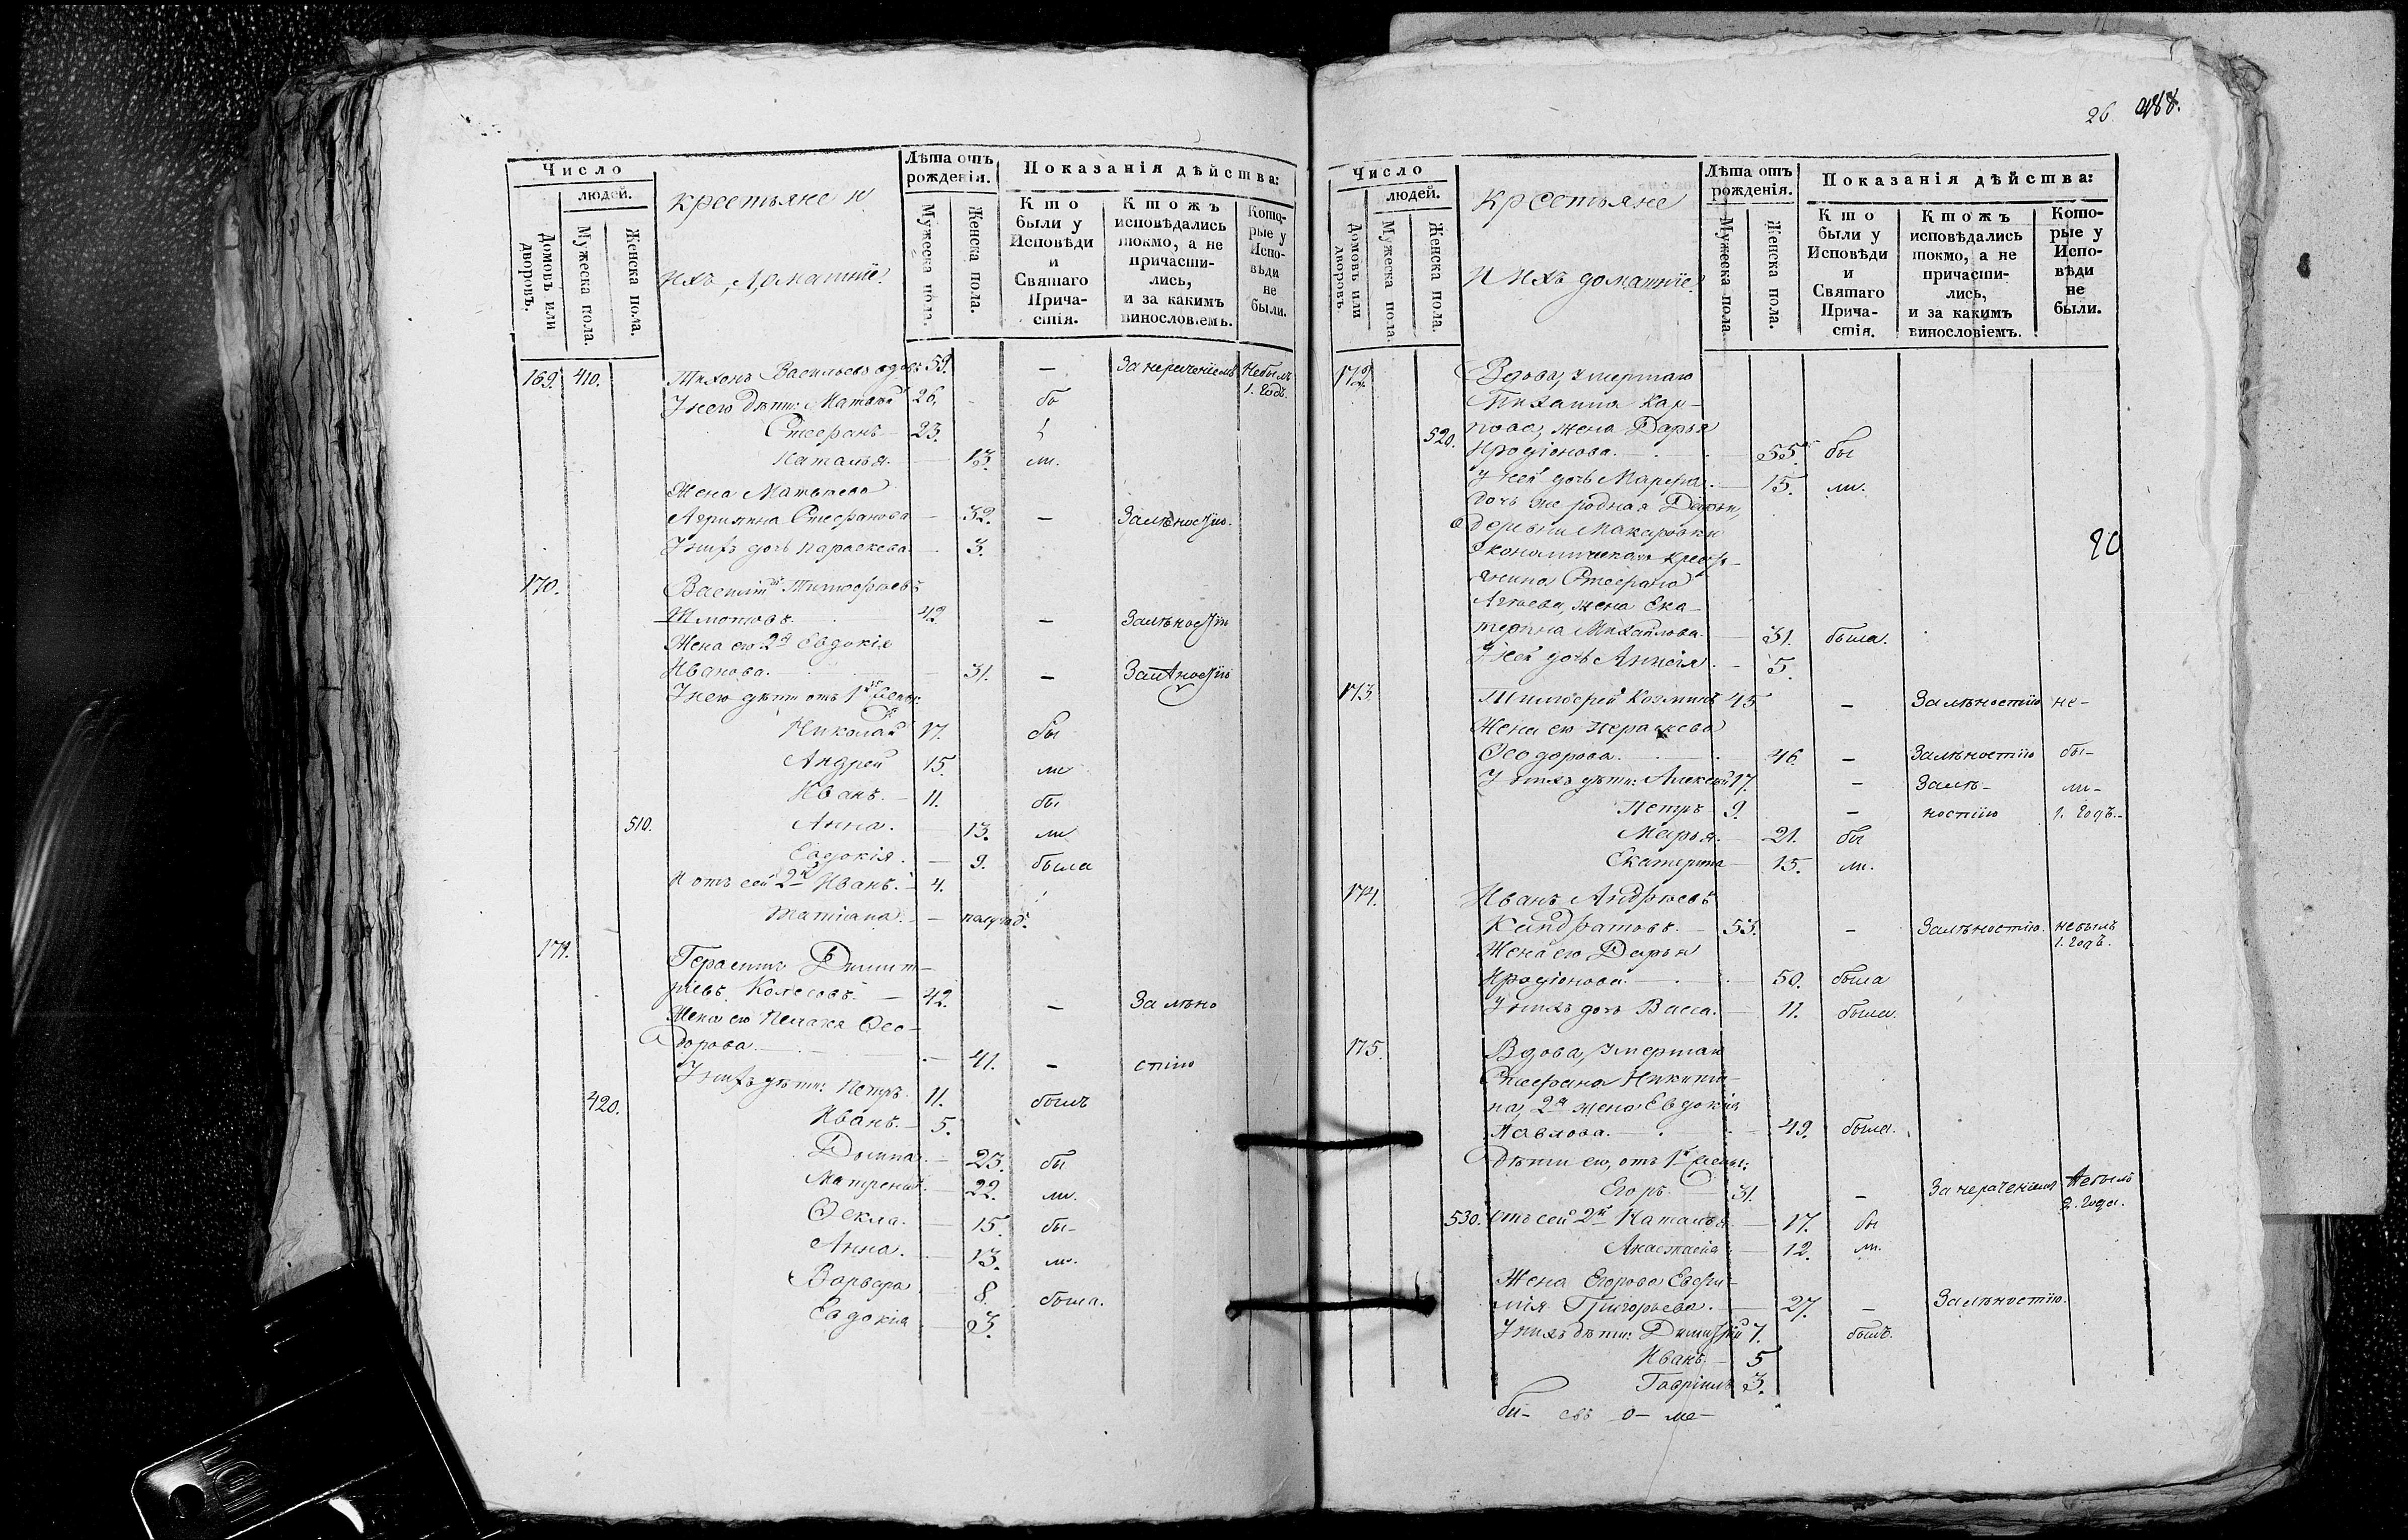 26 488.
Число
людей.
Домовъ или дворовъ.
Мужеска пола.
Женска пола.
крестьяне и
ихъ домашніе.
Лѣта отъ рожденія.
Мужеска пола.
Женска пола.
Показанія дѣйства:
Кто были у Исповѣди и Святаго Причастія.
Ктожъ исповѣдались токмо, а не причастились, и за какимъ винословіемъ.
Которые у Исповѣди не были.
169. 410. Тихонъ Васильевъ вдовъ 59. — За нераченіемъ Небылъ
1. годъ.
У него дѣти: Матвѣй 26. бы
Стефанъ 23.
Наталья. — 13. ли.
Жена Матвѣева
Агрипина Стефанова — 32. — За лѣностію.
У нихъ дочь Параскева — 3.
170. Василій Тимофѣевъ
42. — За лѣностію
Жена его 2я Евдокія
Иванова. 31. — За лѣностію
У него дѣти отъ 1й жены:
Николай 17. бы
Андрей 15. ли
Иванъ. — 11. бы
510. Анна. — 13. ли
Евдокія. — 9. была
И отъ сей 2й Иванъ. — 4.
Татіана. — полугод.
171. Герасимъ Димит-
ріевъ Колесовъ. — 42. — За лѣно
Жена его Пелагея Ѳео-
дорова. — 41. — стію
У нихъ дѣти: Петръ. 11. былъ
420. Иванъ. — 5.
Домна. — 23. бы
Матрена. — 22. ли.
Ѳекла. — 15. бы-
Анна. — 13. ли.
Варвара 8. была.
Евдокія 3.
Число
людей.
Домовъ или дворовъ.
Мужеска пола.
Женска пола.
крестьяне
и ихъ домашніе.
Лѣта отъ рожденія.
Мужеска пола.
Женска пола.
Показанія дѣйства:
Кто были у Исповѣди и Святаго Причастія.
Ктожъ исповѣдались токмо, а не причастились, и за какимъ винословіемъ.
Которые у Исповѣди не были.
172. Вдова, умершаго
Михаила Кар-
пова, жена Дарья
520. Иродіонова. — 55. бы
У ней дочь Марфа. — 15. ли.
дочь же родная Дарьи,
деревни Макаровки
Экономическаго крестья-
янина Стефана
жена Ека-
терина Михайлова. — 31. была.
У ней дочь — 5.
20
173. Тимоѳей Козминъ 45 — За лѣностію не-
Жена его Параскева
Ѳеодорова. — 46. — За лѣностію бы-
У нихъ дѣти: Алексѣй 17. — За лѣ- ли-
Петръ 9. — ностію 1. годъ.
Марья. — 21. бы
Екатерина — 15. ли.
174. Иванъ Андрѣевъ
Кандратовъ. — 53. — За лѣностію. небылъ
1. годъ.
Жена его Дарья
Иродіонова. — 50. была
У нихъ дочь Васса. — 11. была.
175. Вдова, умершаго
Стефана Никити-
на, 2я жена Евдокія
Павлова. — 49. была.
Дѣти его, отъ 1й жены:
Егоръ. — 31. — За нераченіемъ Небылъ
2. года.
530. Отъ сей 2й Наталья — 17. бы
Анастасія — 12. ли.
Жена Егорова Евфи-
мія Григорьева. — 27. — За лѣностію.
У нихъ дѣти: Димитрій 7. былъ.
Иванъ. — 5
Гавріилъ 3.